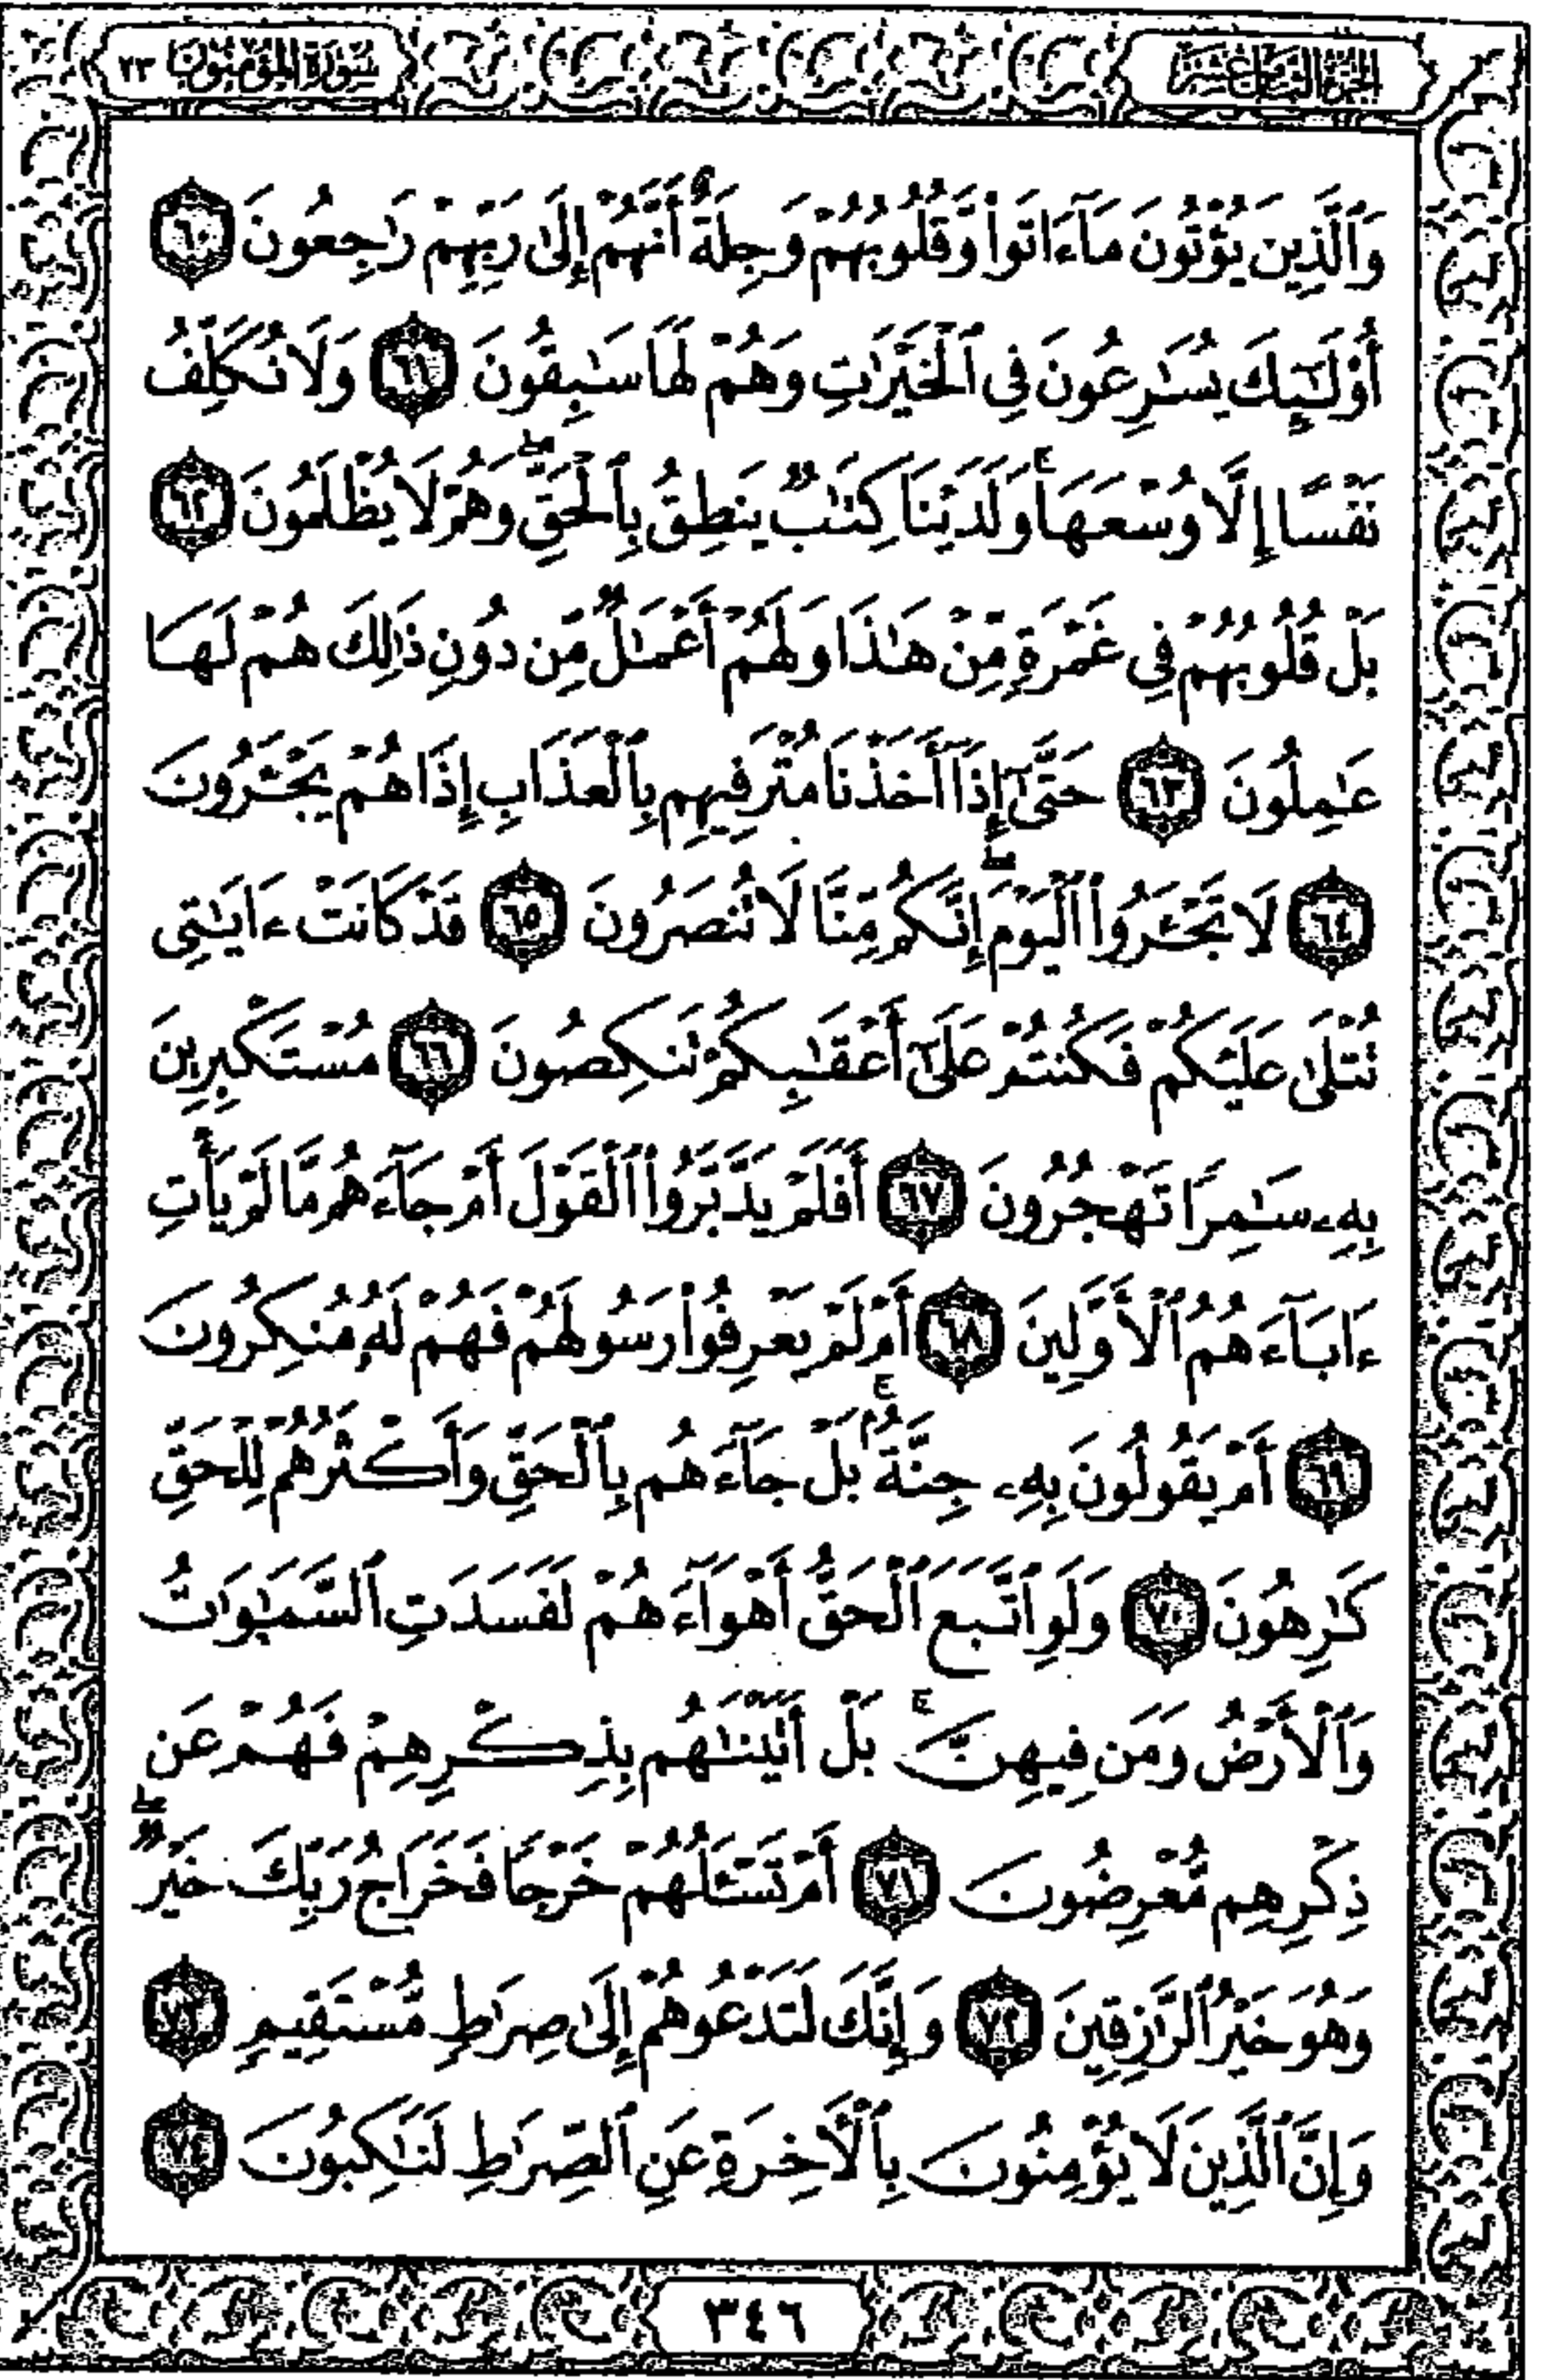 الجزء الثامن عشر
سورة المؤمنون ٢٣
وَٱلَّذِينَ يُؤْتُونَ مَآ ءَاتَوا۟ وَّقُلُوبُهُمْ وَجِلَةٌ أَنَّهُمْ إِلَىٰ رَبِّهِمْ رَٰجِعُونَ ٦٠
أُو۟لَـٰٓئِكَ يُسَـٰرِعُونَ فِى ٱلْخَيْرَٰتِ وَهُمْ لَهَا سَـٰبِقُونَ ٦١ وَلَا نُكَلِّفُ
نَفْسًا إِلَّا وُسْعَهَا ۚ وَلَدَيْنَا كِتَـٰبٌ يَنطِقُ بِٱلْحَقِّ ۖ وَهُمْ لَا يُظْلَمُونَ ٦٢
بَلْ قُلُوبُهُمْ فِى غَمْرَةٍ مِّنْ هَـٰذَا وَلَهُمْ أَعْمَـٰلٌ مِّن دُونِ ذَٰلِكَ هُمْ لَهَا
عَـٰمِلُونَ ٦٣ حَتَّىٰٓ إِذَآ أَخَذْنَا مُتْرَفِيهِم بِٱلْعَذَابِ إِذَا هُمْ يَجْـَٔرُونَ
٦٤ لَا تَجْـَٔرُوا۟ ٱلْيَوْمَ ۖ إِنَّكُم مِّنَّا لَا تُنصَرُونَ ٦٥ قَدْ كَانَتْ ءَايَـٰتِى
تُتْلَىٰ عَلَيْكُمْ فَكُنتُمْ عَلَىٰٓ أَعْقَـٰبِكُمْ تَنكِصُونَ ٦٦ مُسْتَكْبِرِينَ
بِهِۦ سَـٰمِرًا تَهْجُرُونَ ٦٧ أَفَلَمْ يَدَّبَّرُوا۟ ٱلْقَوْلَ أَمْ جَآءَهُم مَّا لَمْ يَأْتِ
ءَابَآءَهُمُ ٱلْأَوَّلِينَ ٦٨ أَمْ لَمْ يَعْرِفُوا۟ رَسُولَهُمْ فَهُمْ لَهُۥ مُنكِرُونَ
٦٩ أَمْ يَقُولُونَ بِهِۦ جِنَّةٌۢ ۚ بَلْ جَآءَهُم بِٱلْحَقِّ وَأَكْثَرُهُمْ لِلْحَقِّ
كَـٰرِهُونَ ٧٠ وَلَوِ ٱتَّبَعَ ٱلْحَقُّ أَهْوَآءَهُمْ لَفَسَدَتِ ٱلسَّمَـٰوَٰتُ
وَٱلْأَرْضُ وَمَن فِيهِنَّ ۚ بَلْ أَتَيْنَـٰهُم بِذِكْرِهِمْ فَهُمْ عَن
ذِكْرِهِم مُّعْرِضُونَ ٧١ أَمْ تَسْـَٔلُهُمْ خَرْجًا فَخَرَاجُ رَبِّكَ خَيْرٌ ۖ
وَهُوَ خَيْرُ ٱلرَّٰزِقِينَ ٧٢ وَإِنَّكَ لَتَدْعُوهُمْ إِلَىٰ صِرَٰطٍ مُّسْتَقِيمٍ ٧٣
وَإِنَّ ٱلَّذِينَ لَا يُؤْمِنُونَ بِٱلْـَٔاخِرَةِ عَنِ ٱلصِّرَٰطِ لَنَـٰكِبُونَ ٧٤
٣٤٦